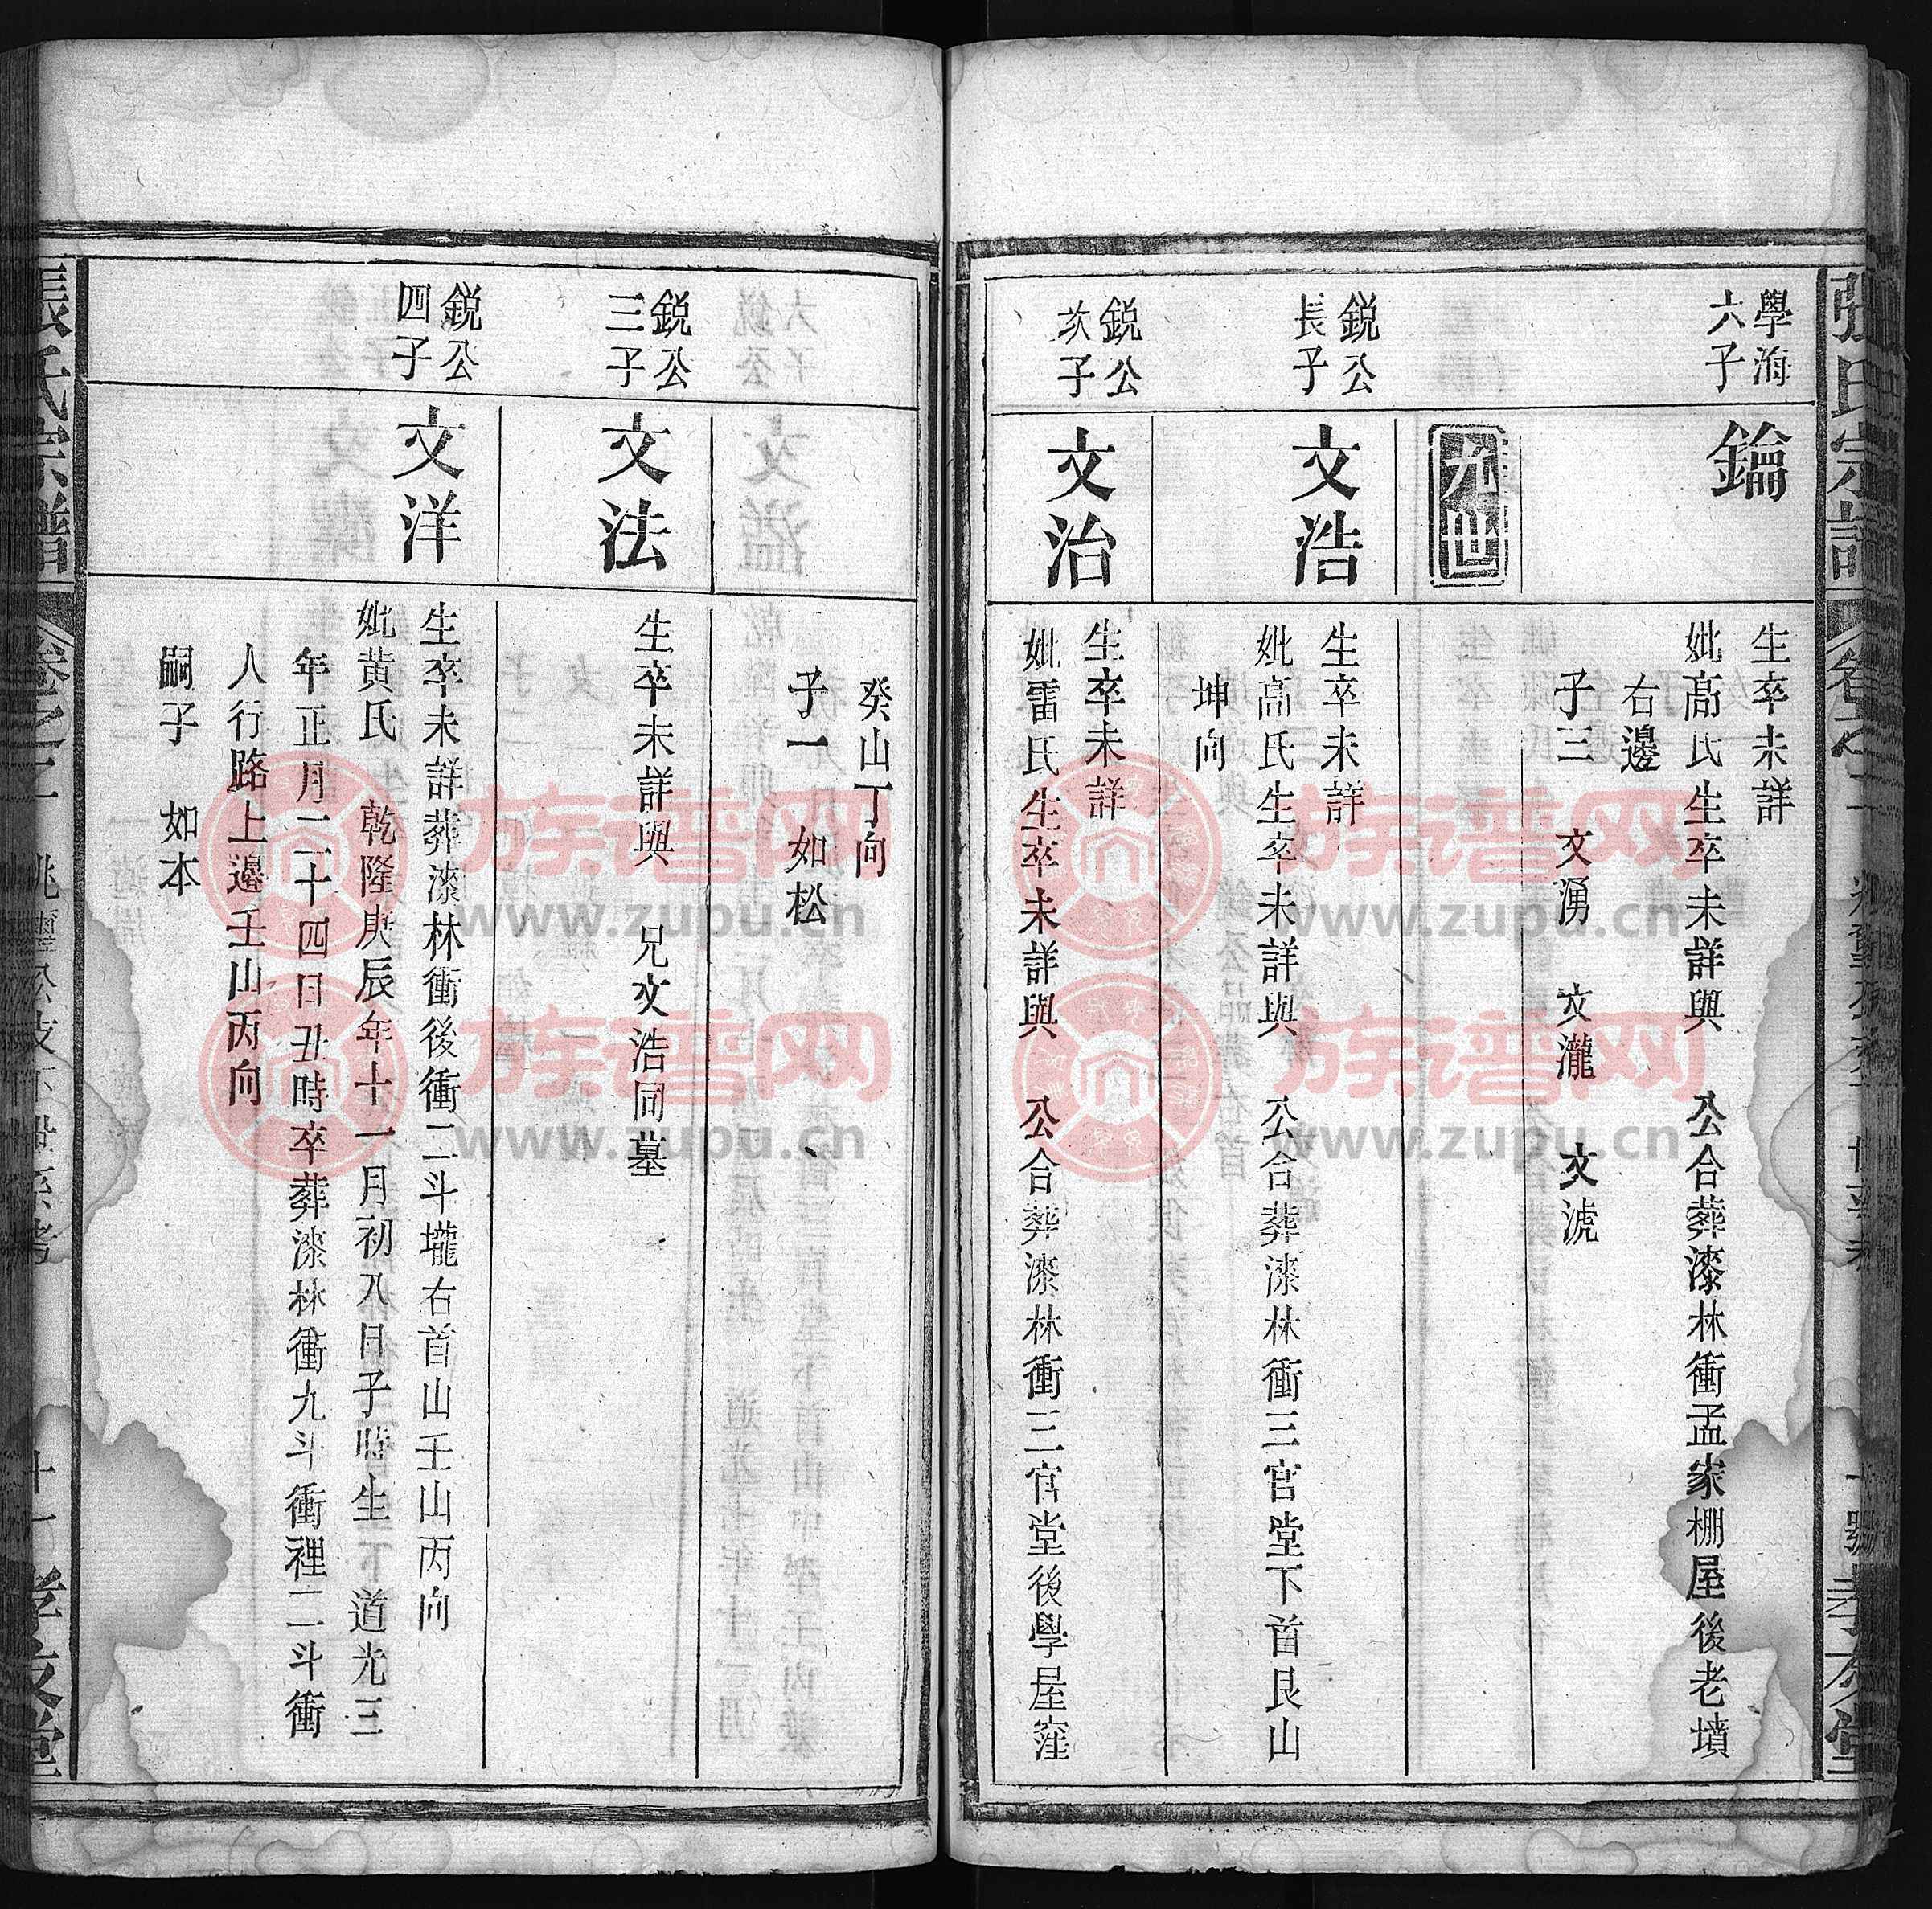 張氏宗譜
孝友堂
學海
六子
鑰
生卒未詳
妣高氏生卒未詳與　公合葬漆林衝孟家棚屋後老墳
右邊
子三　文湧　文瀧　文淲
九世
鋭公
長子
文浩
生卒未詳
妣高氏生卒未詳與　公合葬漆林衝三官堂下首艮山
坤向
鋭公
次子
文治
生卒未詳
妣雷氏生卒未詳與　公合葬漆林衝三官堂後學屋窪
癸山丁向
子一　如松
鋭公
三子
文法
生卒未詳與　兄文浩同墓
鋭公
四子
文洋
生卒未詳葬漆林衝後衝二斗壠右首山壬山丙向
妣黄氏　乾隆庚辰年十一月初八日子時生　道光三
年正月二十四日丑時卒葬漆林衝九斗衝裡二斗衝
人行路上邊壬山丙向
嗣子　如本
張氏宗譜
卷之二
十一
孝友堂
族谱网
www.zupu.cn
族谱网
www.zupu.cn
族谱网
www.zupu.cn
族谱网
www.zupu.cn